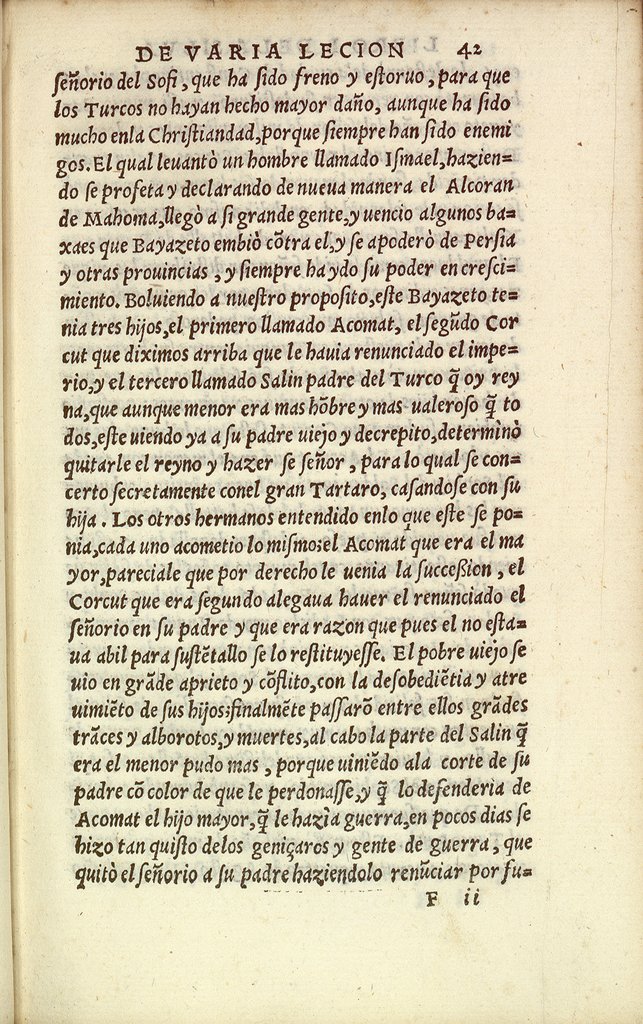 DE VARIA LECION 42
ſeñorio del Sofi, que ha ſido freno y eſtoruo, para que
los Turcos no hayan hecho mayor daño, aunque ha ſido
mucho enla Chriſtiandad, porque ſiempre han ſido enemi
gos. El qual leuantò un hombre llamado Iſmael, hazien=
do ſe profeta y declarando de nueua manera el Alcoran
de Mahoma, llegò a ſi grande gente, y uencio algunos ba=
xaes que Bayazeto embiò cõtra el, y ſe apoderò de Perſia
y otras prouincias, y ſiempre ha ydo ſu poder en creſci=
miento. Boluiendo a nueſtro propoſito, eſte Bayazeto te=
nia tres hijos, el primero llamado Acomat, el ſegũdo Cor
cut que diximos arriba que le hauia renunciado el impe=
rio, y el tercero llamado Salin padre del Turco q̃ oy rey
na, que aunque menor era mas hõbre y mas ualeroſo q̃ to
dos, eſte uiendo ya a ſu padre uiejo y decrepito, determinò
quitarle el reyno y hazer ſe ſeñor, para lo qual ſe con=
certo ſecretamente conel gran Tartaro, caſandoſe con ſu
hija. Los otros hermanos entendido enlo que eſte ſe po=
nia, cada uno acometio lo miſmo: el Acomat que era el ma
yor, pareciale que por derecho le uenia la ſucceßion, el
Corcut que era ſegundo alegaua hauer el renunciado el
ſeñorio en ſu padre y que era razon que pues el no eſta=
ua abil para ſuſtẽtallo ſe lo reſtituyeſſe. El pobre uiejo ſe
uio en grãde aprieto y cõflito, con la deſobediẽtia y atre
uimiẽto de ſus hijos: finalmẽte paſſarõ entre ellos grãdes
trãces y alborotos, y muertes, al cabo la parte del Salin q̃
era el menor pudo mas, porque uiniẽdo ala corte de ſu
padre cõ color de que le perdonaſſe, y q̃ lo defenderia de
Acomat el hijo mayor, q̃ le hazìa guerra, en pocos dias ſe
hizo tan quiſto delos geniçaros y gente de guerra, que
quitò el ſeñorio a ſu padre haziendolo renũciar por fu=
F ii